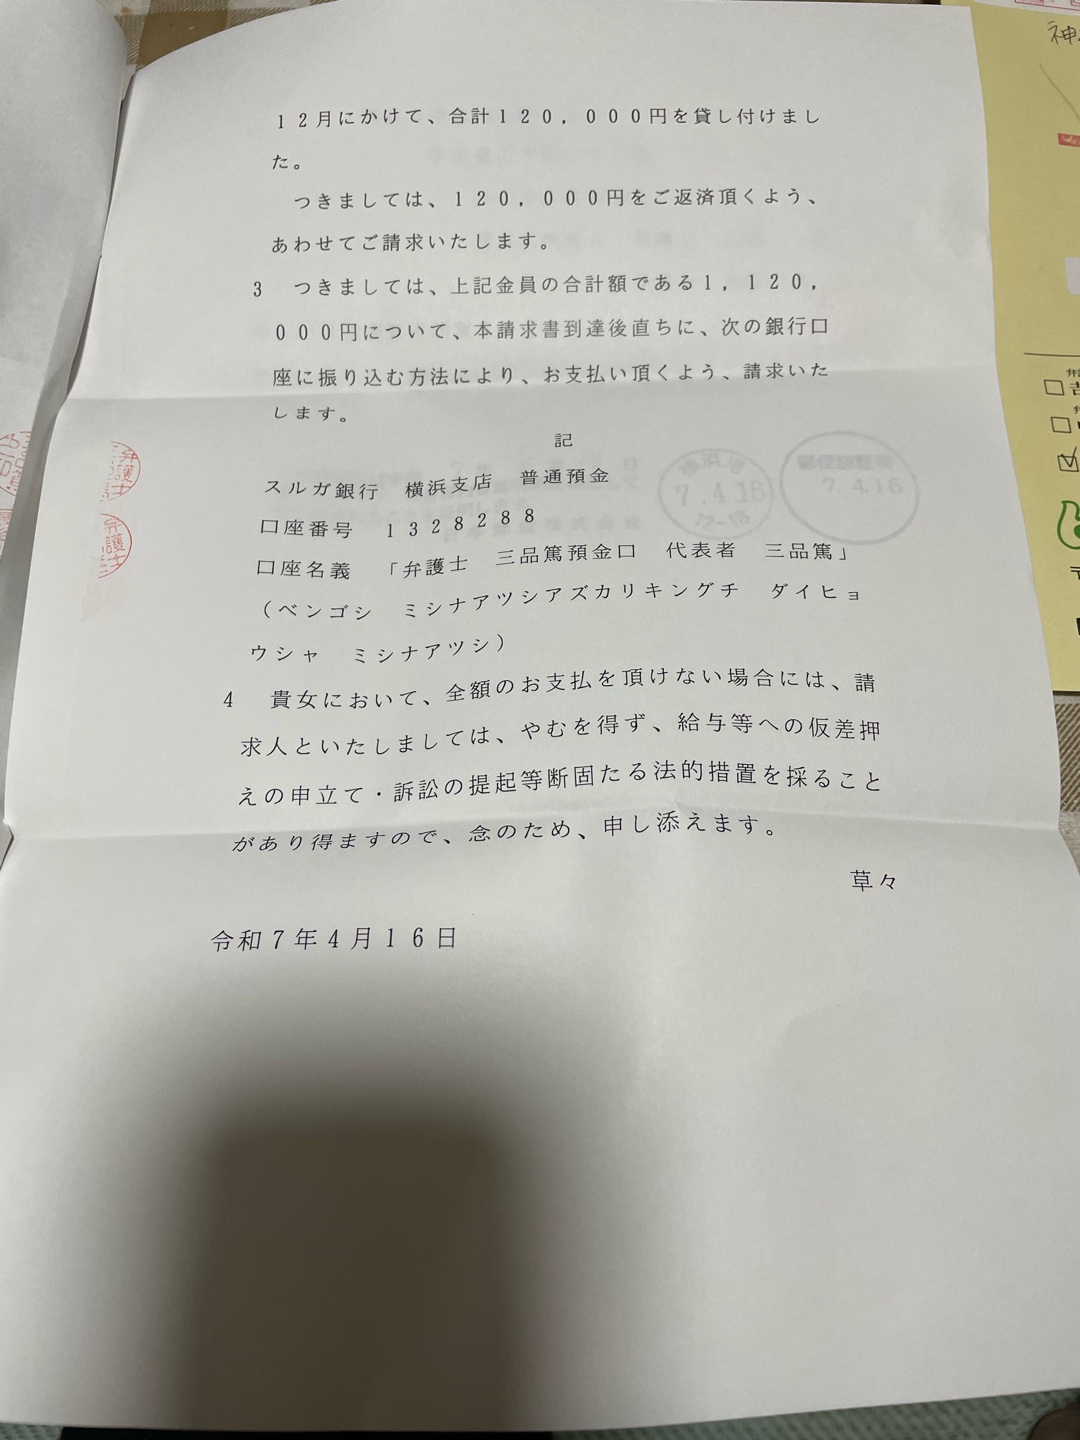 12月にかけて、合計120,000円を貸し付けまし
た。
つきましては、120,000円をご返済頂くよう、
あわせてご請求いたします。
3 つきましては、上記金員の合計額である1,120,
000円について、本請求書到達後直ちに、次の銀行口
座に振り込む方法により、お支払い頂くよう、請求いた
します。
記
スルガ銀行 横浜支店 普通預金
口座番号 1328288
口座名義 「弁護士 三品篤預金口 代表者 三品篤」
(ベンゴシ ミシナアツシアズカリキングチ ダイヒョ
ウシャ ミシナアツシ)
4 貴女において、全額のお支払を頂けない場合には、請
求人といたしましては、やむを得ず、給与等への仮差押
えの申立て・訴訟の提起等断固たる法的措置を採ること
があり得ますので、念のため、申し添えます。
草々
令和7年4月16日
7.4.16
12-18
7.4.16
弁護士
弁護士
神